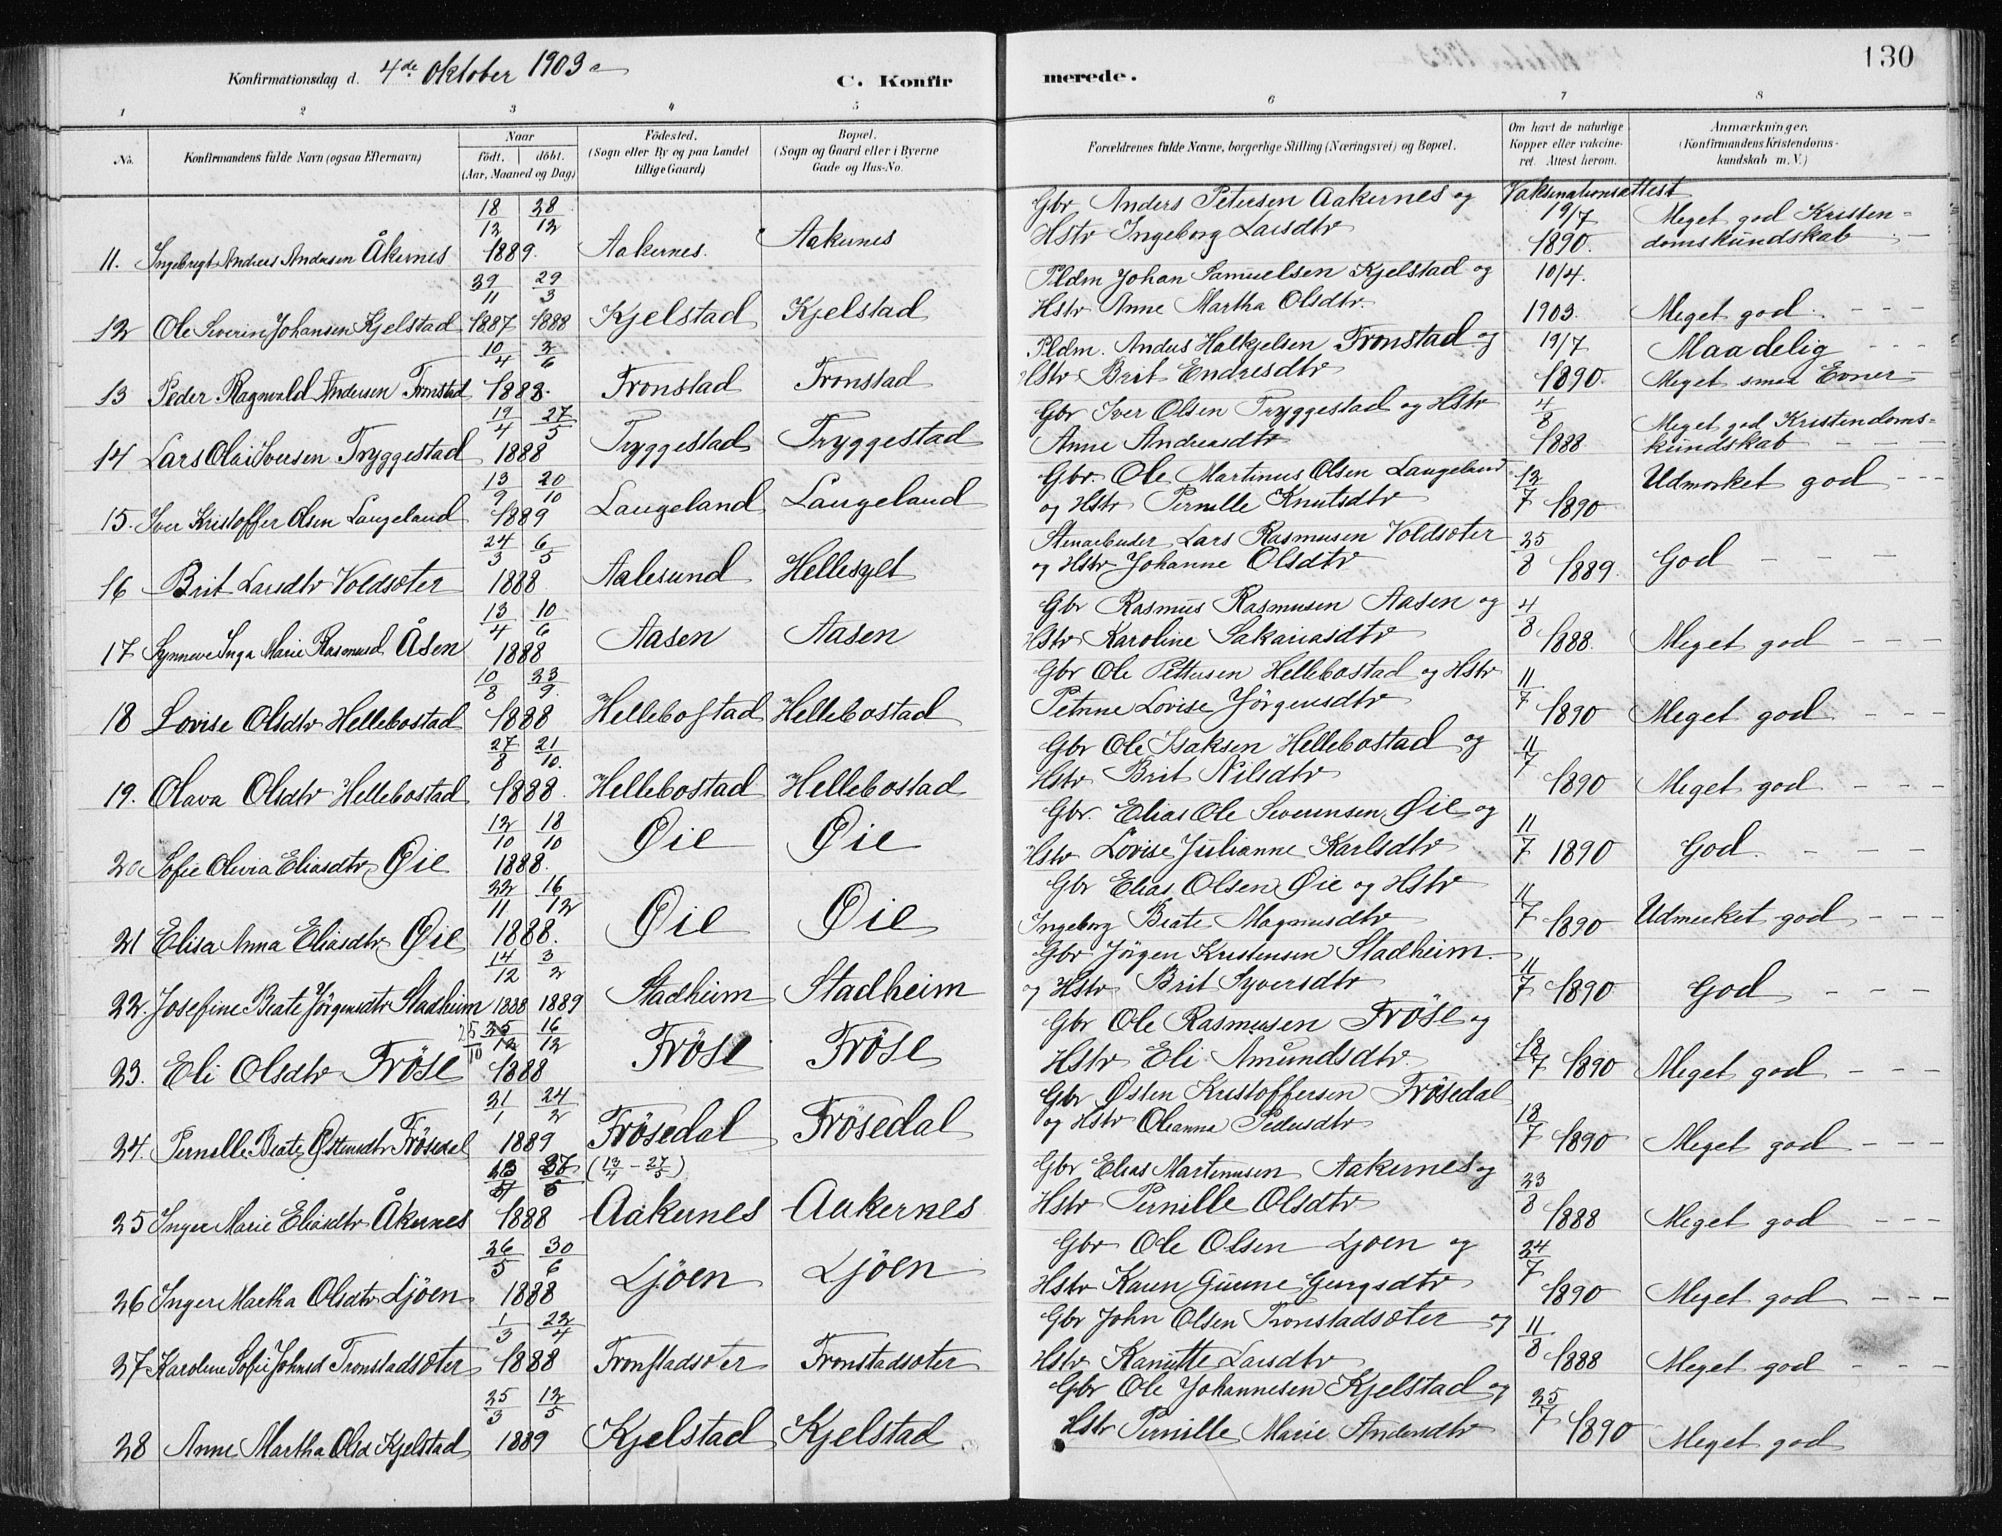 130
Konfirmationsdag d. 4de Oktober 1903
C. Konfirmerede.
1 2 3 4 5 6 7 8
No. Konfirmandens fulde Navn (ogsaa Efternavn) Naar födt. döbt. (Aar, Maaned og Dag) Födested. (Sogn eller By og paa Landet tillige Gaard) Bopæl. (Sogn og Gaard eller i Byerne Gade og Hus-No. Forældrenes fulde Navne, borgerlige Stilling (Næringsvei) og Bopæl. Om havt de naturlige Kopper eller vakcineret. Attest herom. Anmærkninger. (Konfirmandens Kristendomskundskab m. V.)
11. Ingebrigt Andreas Andersen Åkernes 18/12 28/12 1889. Aakernes. Aakernes Gbr Anders Petersen Aakernes og Hstr Ingeborg Larsdtr Vaksinationsattest 19/7 1890. Meget god Kristendomskundskab
12 Ole Severin Johansen Kjelstad 29/11 1887 29/3 1888 Kjelstad Kjelstad Pldm Johan Samuelsen Kjelstad og Hstr Anne Martha Olsdtr. 10/4. 1903. Meget god.
13 Peder Ragnvald Andersen Tronstad 10/4 2/6 1888. Tronstad Tronstad Pldm. Anders Halkjelsen Tronstad og Hstr Brit Endresdtr 19/7 1890. Maadelig Meget smaa Evner
14 Lars Olai Iversen Tryggestad 19/4 27/5 1888 Tryggestad Tryggestad Gbr Iver Olsen Tryggestad og Hstr Anne Andreasdtr 4/8 1888. Meget god Kristendomskundskab
15. Iver Kristoffer Olsen Langeland 13/9 20/10 1889 Langeland Langeland Gbr. Ole Martinus Olsen Langeland og Hstr Pernille Knutsdtr 12/7 1890 Udmerket god
16 Brit Larsdtr Voldsæter 24/3 6/5 1888 Aalesund Hellesylt Stenarbeider Lars Rasmusen Voldsæter og Hstr Johanne Olsdtr 25/8 1889. God
17 Synneve Inga Marie Rasmusd Åsen 13/4 10/6 1888 Aasen Aasen Gbr Rasmus Rasmusen Aasen og Hstr Karoline Sakariasdtr 4/8 1888. Meget god
18 Lovise Olsdtr Hellebostad 10/8 23/9. 1888 Hellebostad Hellebostad Gbr Ole Pettersen Hellebostad og Hstr Petrine Lovise Jörgensdtr 11/7 1890 Meget god
19. Olava Olsdtr Hellebostad 27/8 21/10. 1888. Hellebostad Hellebostad Gbr Ole Isaksen Hellebostad og Hstr Brit Nilsdtr 11/7 1890 Meget god
20 Sofie Olivia Eliasdtr Øie 12/10 18/10 1888. Øie Øie Gbr. Elias Ole Severinsen Øie og Hstr Lovise Julianne Karlsdtr 11/7 1890 God.
21 Elisa Anna Eliasdtr Øie 22/11 16/12 1888. Øie Øie Gbr Elias Olsen Øie og Hstr Ingeborg Beate Magnusdtr 11/7 1890 Udmerket god
22. Josefine Beate Jörgensdtr Stadheim 14/12 1888 3/2 1889 Stadheim Stadheim Gbr Jörgen Kristensen Stadheim og Hstr Brit Syversdtr 11/7 1890 God
23. Eli Olsdtr Fröse 25/10 25/12 16/12 1888 Fröse Fröse Gbr Ole Rasmusen Fröse og Hstr Eli Amundsdtr 18/7 1890 Meget god
24. Pernille Beate Østensdtr Frösedal 31/1 24/2 1889 Frösedal Frösedal Gbr Østen Kristoffersen Frösedal og Hstr Oleanna Pedersdtr 18/7 1890 Meget god
25 Inger Marie Eliasdtr Åkernes 27/5 1888 (13/4 - 27/5) Aakernes Aakernes Gbr Elias Martinusen Aakernes og Hstr Pernille Olsdtr 23/8 1888 Meget god
26 Inger Martha Olsdtr Ljöen 26/5 30/6 1888 Ljöen Ljöen Gbr Ole Olsen Ljoen og Hstr Karen Gurine Georgsdtr 24/7 1890 Meget god
27 Karoline Sofie Johnsd Tronstadsæter 1/3 22/4 1888 Tronstadsæter Tronstadsæter Gbr John Olsen Tronstadsæter og Hstr Kanutte Larsdtr 11/8 1888 Meget god
28 Anne Martha Olsd Kjelstad 25/3 12/5 1889 Kjelstad Kjelstad Gbr Ole Johannesen Kjelstad og Hstr Pernille Marie Andersdtr 25/7 1890 Meget god